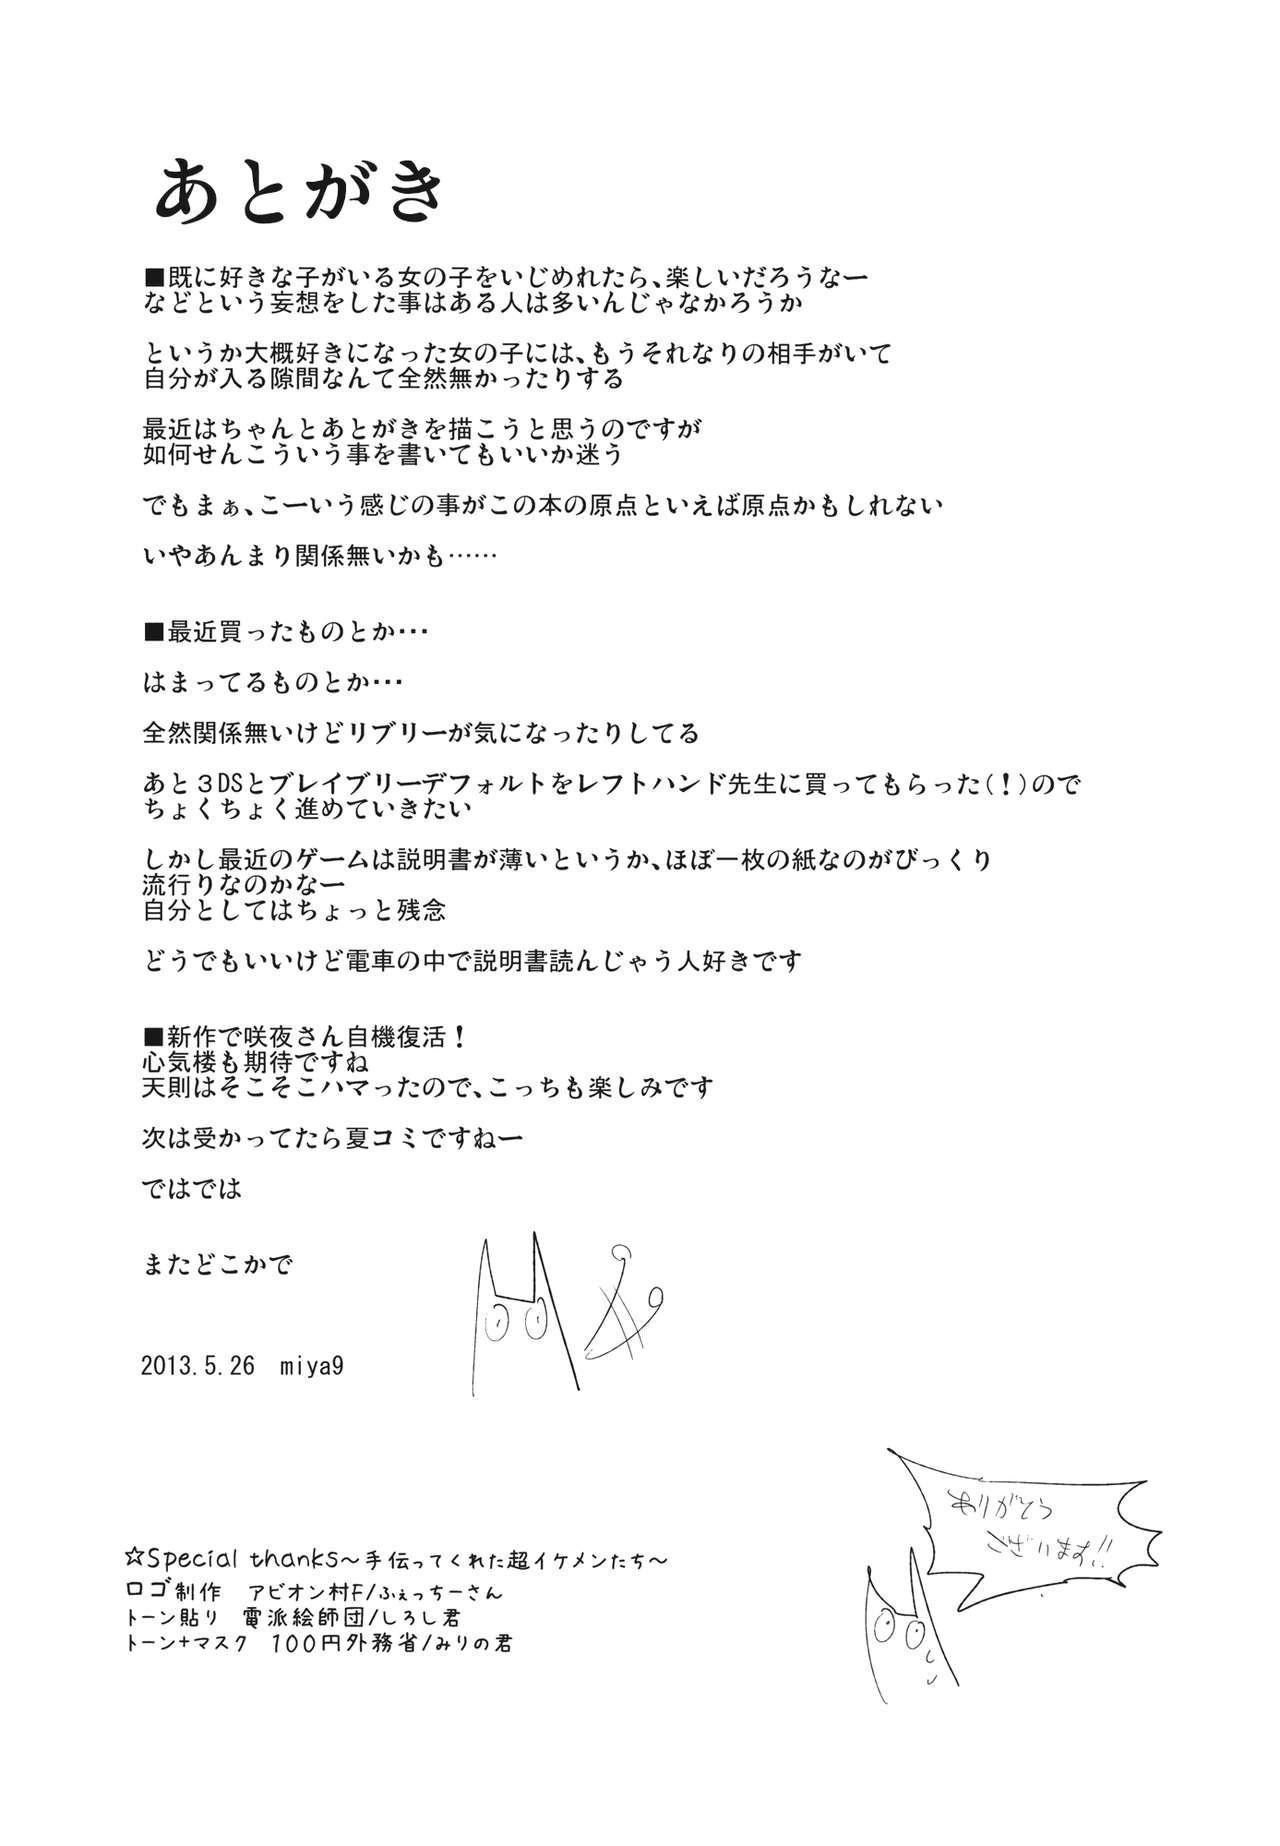 あとがき
■既に好きな子がいる女の子をいじめれたら、楽しいだろうなー
などという妄想をした事はある人は多いんじゃなかろうか
というか大概好きになった女の子には、もうそれなりの相手がいて
自分が入る隙間なんて全然無かったりする
最近はちゃんとあとがきを描こうと思うのですが
如何せんこういう事を書いてもいいか迷う
でもまぁ、こーいう感じの事がこの本の原点といえば原点かもしれない
いやあんまり関係無いかも……
■最近買ったものとか･･･
はまってるものとか･･･
全然関係無いけどリブリーが気になったりしてる
あと３DSとブレイブリーデフォルトをレフトハンド先生に買ってもらった(！)ので
ちょくちょく進めていきたい
しかし最近のゲームは説明書が薄いというか、ほぼ一枚の紙なのがびっくり
流行りなのかなー
自分としてはちょっと残念
どうでもいいけど電車の中で説明書読んじゃう人好きです
■新作で咲夜さん自機復活！
心気楼も期待ですね
天則はそこそこハマったので、こっちも楽しみです
次は受かってたら夏コミですねー
ではでは
またどこかで
2013.5.26 miya9
ありがとう
ございます!!
☆Special thanks～手伝ってくれた超イケメンたち～
ロゴ制作　アビオン村F/ふぇっちーさん
トーン貼り　電派絵師団/しろし君
トーン+マスク　100円外務省/みりの君